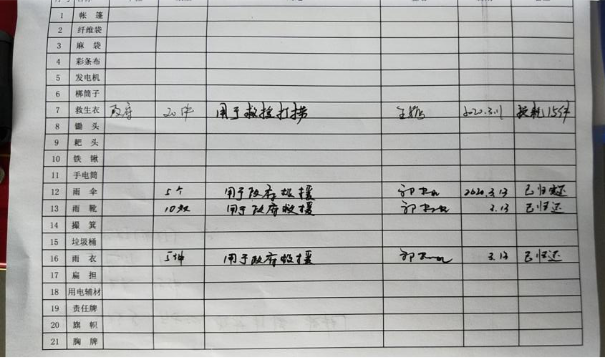 1 帐篷
2 纤维袋
3 麻袋
4 彩条布
5 发电机
6 梆筒子
7 救生衣 政府 20件 用于救援打捞 2020.3.11 损耗15件
8 锄头
9 耙头
10 铁锹
11 手电筒
12 雨伞 5个 用于政府救援 2020.3.13 已归还
13 雨靴 10双 用于政府救援 3.13 已归还
14 撮箕
15 垃圾桶
16 雨衣 5件 用于政府救援 3.13 已归还
17 扁担
18 用电辅材
19 责任牌
20 旗帜
21 胸牌